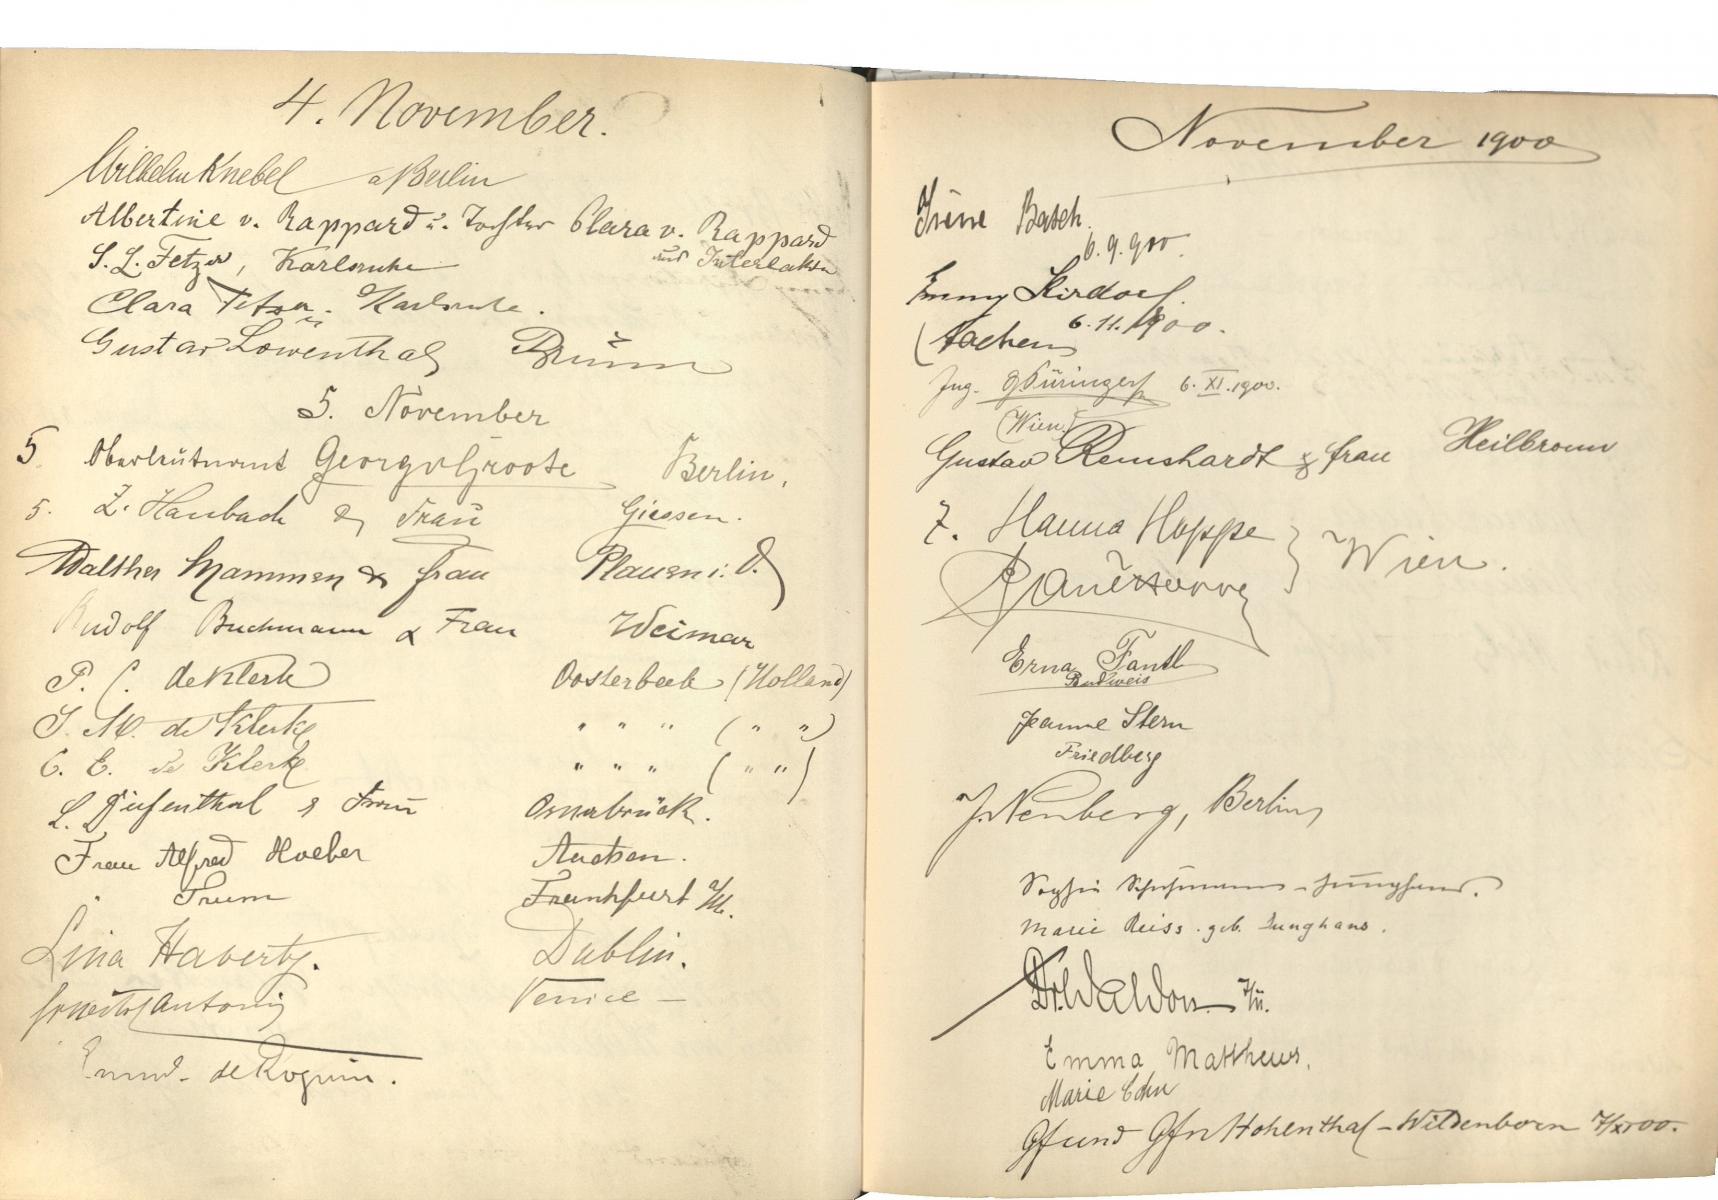 4. November.
Wilhelm Knebel a Berlin
Albertine v. Rappard u. Tochter Clara v. Rappard
aus Interlaken
S. L. Fetzer, Karlsruhe
Clara Fetzer. Karlsruhe.
Gustav Löwenthal Brünn
5. November
5 Oberleutnant Georg v Groote Berlin,
5. L. Haubach & Frau Giessen.
Walther Mammen & Frau Plauen i. V.
Rudolf Buchmann & Frau Weimar
P. C. de Klerk Oosterbeek (Holland)
J. M. de Klerk " " " ( " " )
C. E. de Klerk " " " ( " " )
L. Diefenthal & Frau Osnabrück.
Frau Alfred Hoeber Aachen.
" Frankfurt a/M.
Lina Haverty. Dublin.
Antonij Venice —
de
November 1900
Irène Basch.
6. 9. 900.
Emmy Kirdorf.
(Aachen 6. 11. 1900.
Ing. 6. XI. 1900.
(Wien)
Gustav Remshardt & frau Heilbronn
7. Hanna Hoppe } Wien.
Erna Fantl
Budweis
Jeanne Stern
Friedberg
J. Nenberg, Berlin,
Sophie Schuhmann - Junghans.
Marie Reiss. geb. Junghans.
Dr. Waldow
Emma Matthews.
Marie Cohn
Gf und Gfn Hohenthal - Wildenborn 7/XI 00.